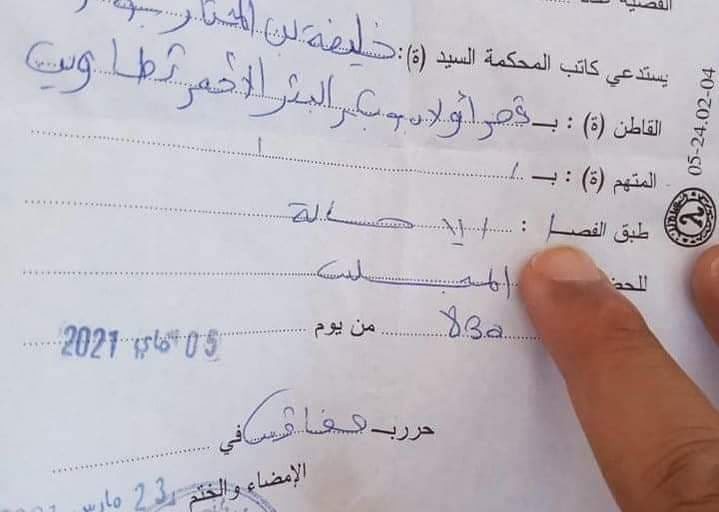 القضية عدد
يستدعي كاتب المحكمة السيد (ة): خليفة بن المختار
القاطن (ة) : بـ قصر أولاد دباب البئر الأحمر تطاوين
المتهم (ة) : بـ /
طبق الفصل : الإحالة
للحضور المجلس
من يوم 05 ماي 2021
حرر بـ صفاقس في
الإمضاء والختم 23 مارس
05-24.02-04